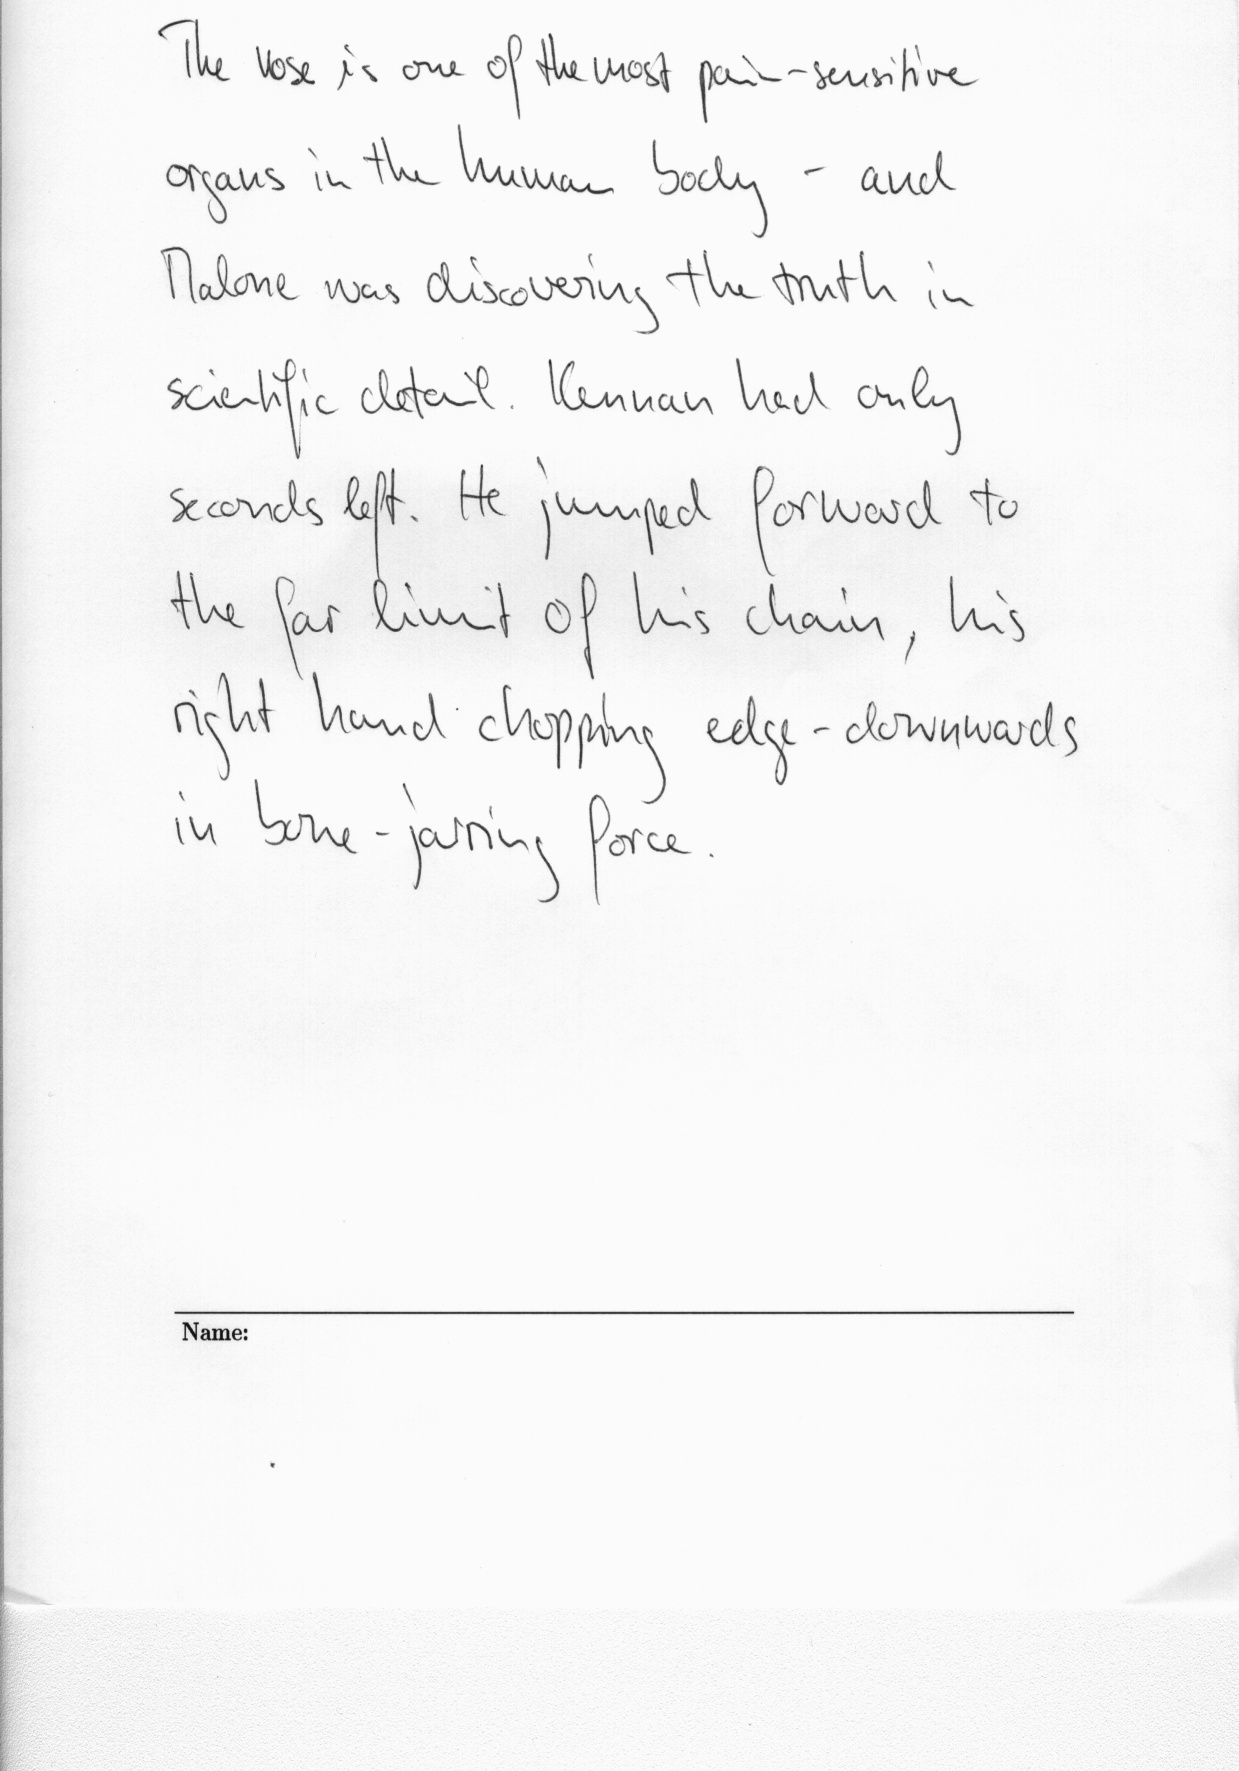 The nose is one of the most pain-sensitive
organs in the human body - and
Malone was discovering the truth in
scientific detail. Kennan had only
seconds left. He jumped forward to
the far limit of his chain, his
right hand chopping edge-downwards
in bone-jarring force.
Name: